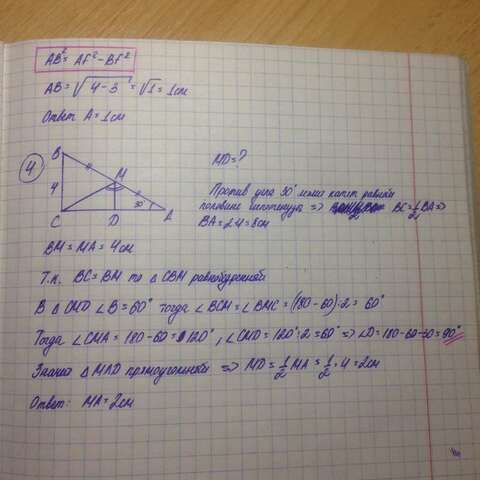 AB² = AF² - BF²
AB = √4-3 = √1 = 1см
Ответ A = 1см
4
B
M
4
30°
C
D
A
MD = ?
Против угла 30° лежит катет равный
половине гипотенузы => BC = 1/2 BA =>
BA = 2·4 = 8см
BM = MA = 4см
Т.к. BC = BM то △ CBM равнобедренный
В △ CMD ∠B = 60° тогда ∠BCM = ∠BMC = (180-60):2 = 60°
Тогда ∠CMA = 180-60 = 120°, ∠CMD = 120°:2 = 60° => ∠D = 180-60-30 = 90°
Значит △ MAD прямоугольный => MD = 1/2 MA = 1/2 · 4 = 2см
Ответ: MA = 2см